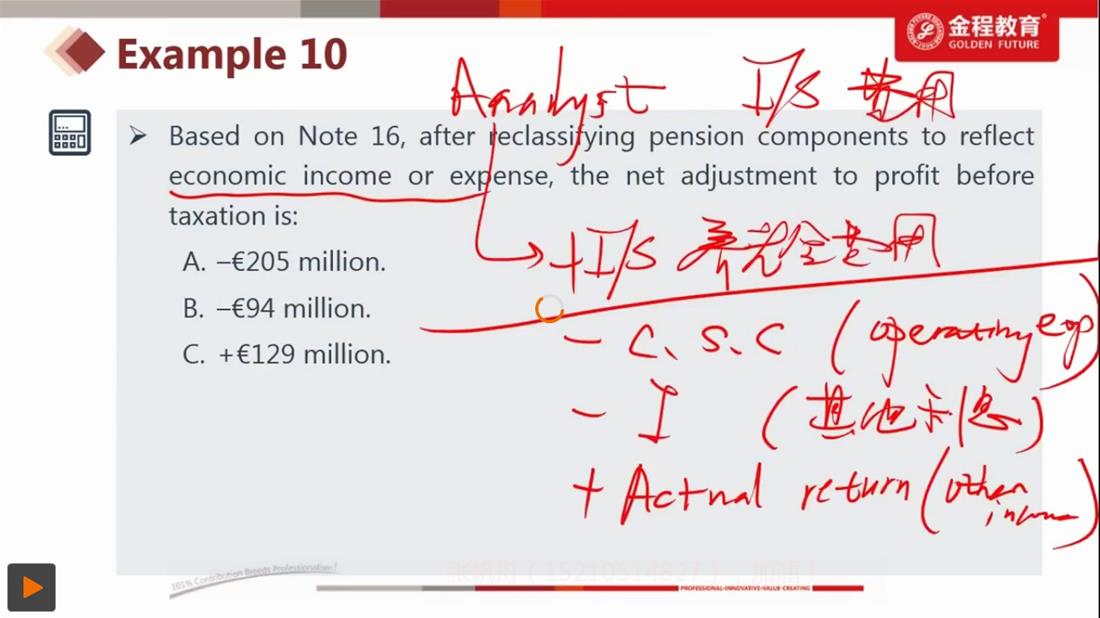 金程教育
GOLDEN FUTURE
Example 10
Analyst I/S 费用
➤ Based on Note 16, after reclassifying pension components to reflect
economic income or expense, the net adjustment to profit before
taxation is:
+I/S 养老金费用
A. –€205 million.
B. –€94 million.
– C.S.C (operating exp)
C. +€129 million.
– I (其他利息)
+ Actual return (other income)
101% Contribution Breeds Professionalism!
PROFESSIONAL·INNOVATIVE·VALUE·CREATING